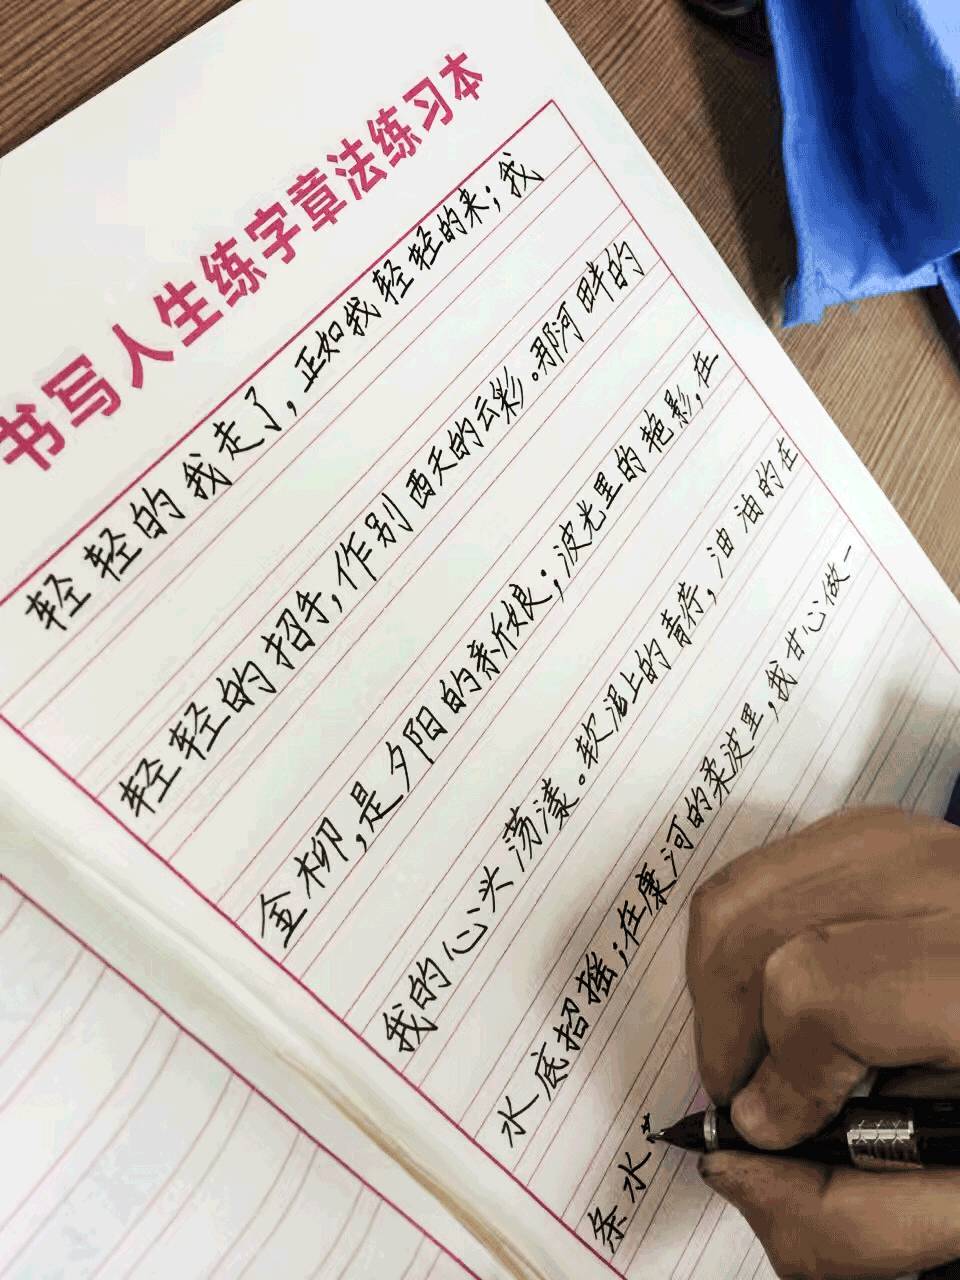 书写人生练字章法练习本
轻轻的我走了，正如我轻轻的来；我
轻轻的招手，作别西天的云彩。那河畔的
金柳，是夕阳的新娘；波光里的艳影，在
我的心头荡漾。软泥上的青荇，油油的在
水底招摇；在康河的柔波里，我甘心做一
条水